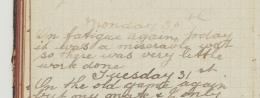 Monday 30th
On fatigue again, today
it was a miserable wet
so there was very little
work done
Tuesday 31st
On the old game again
but my only